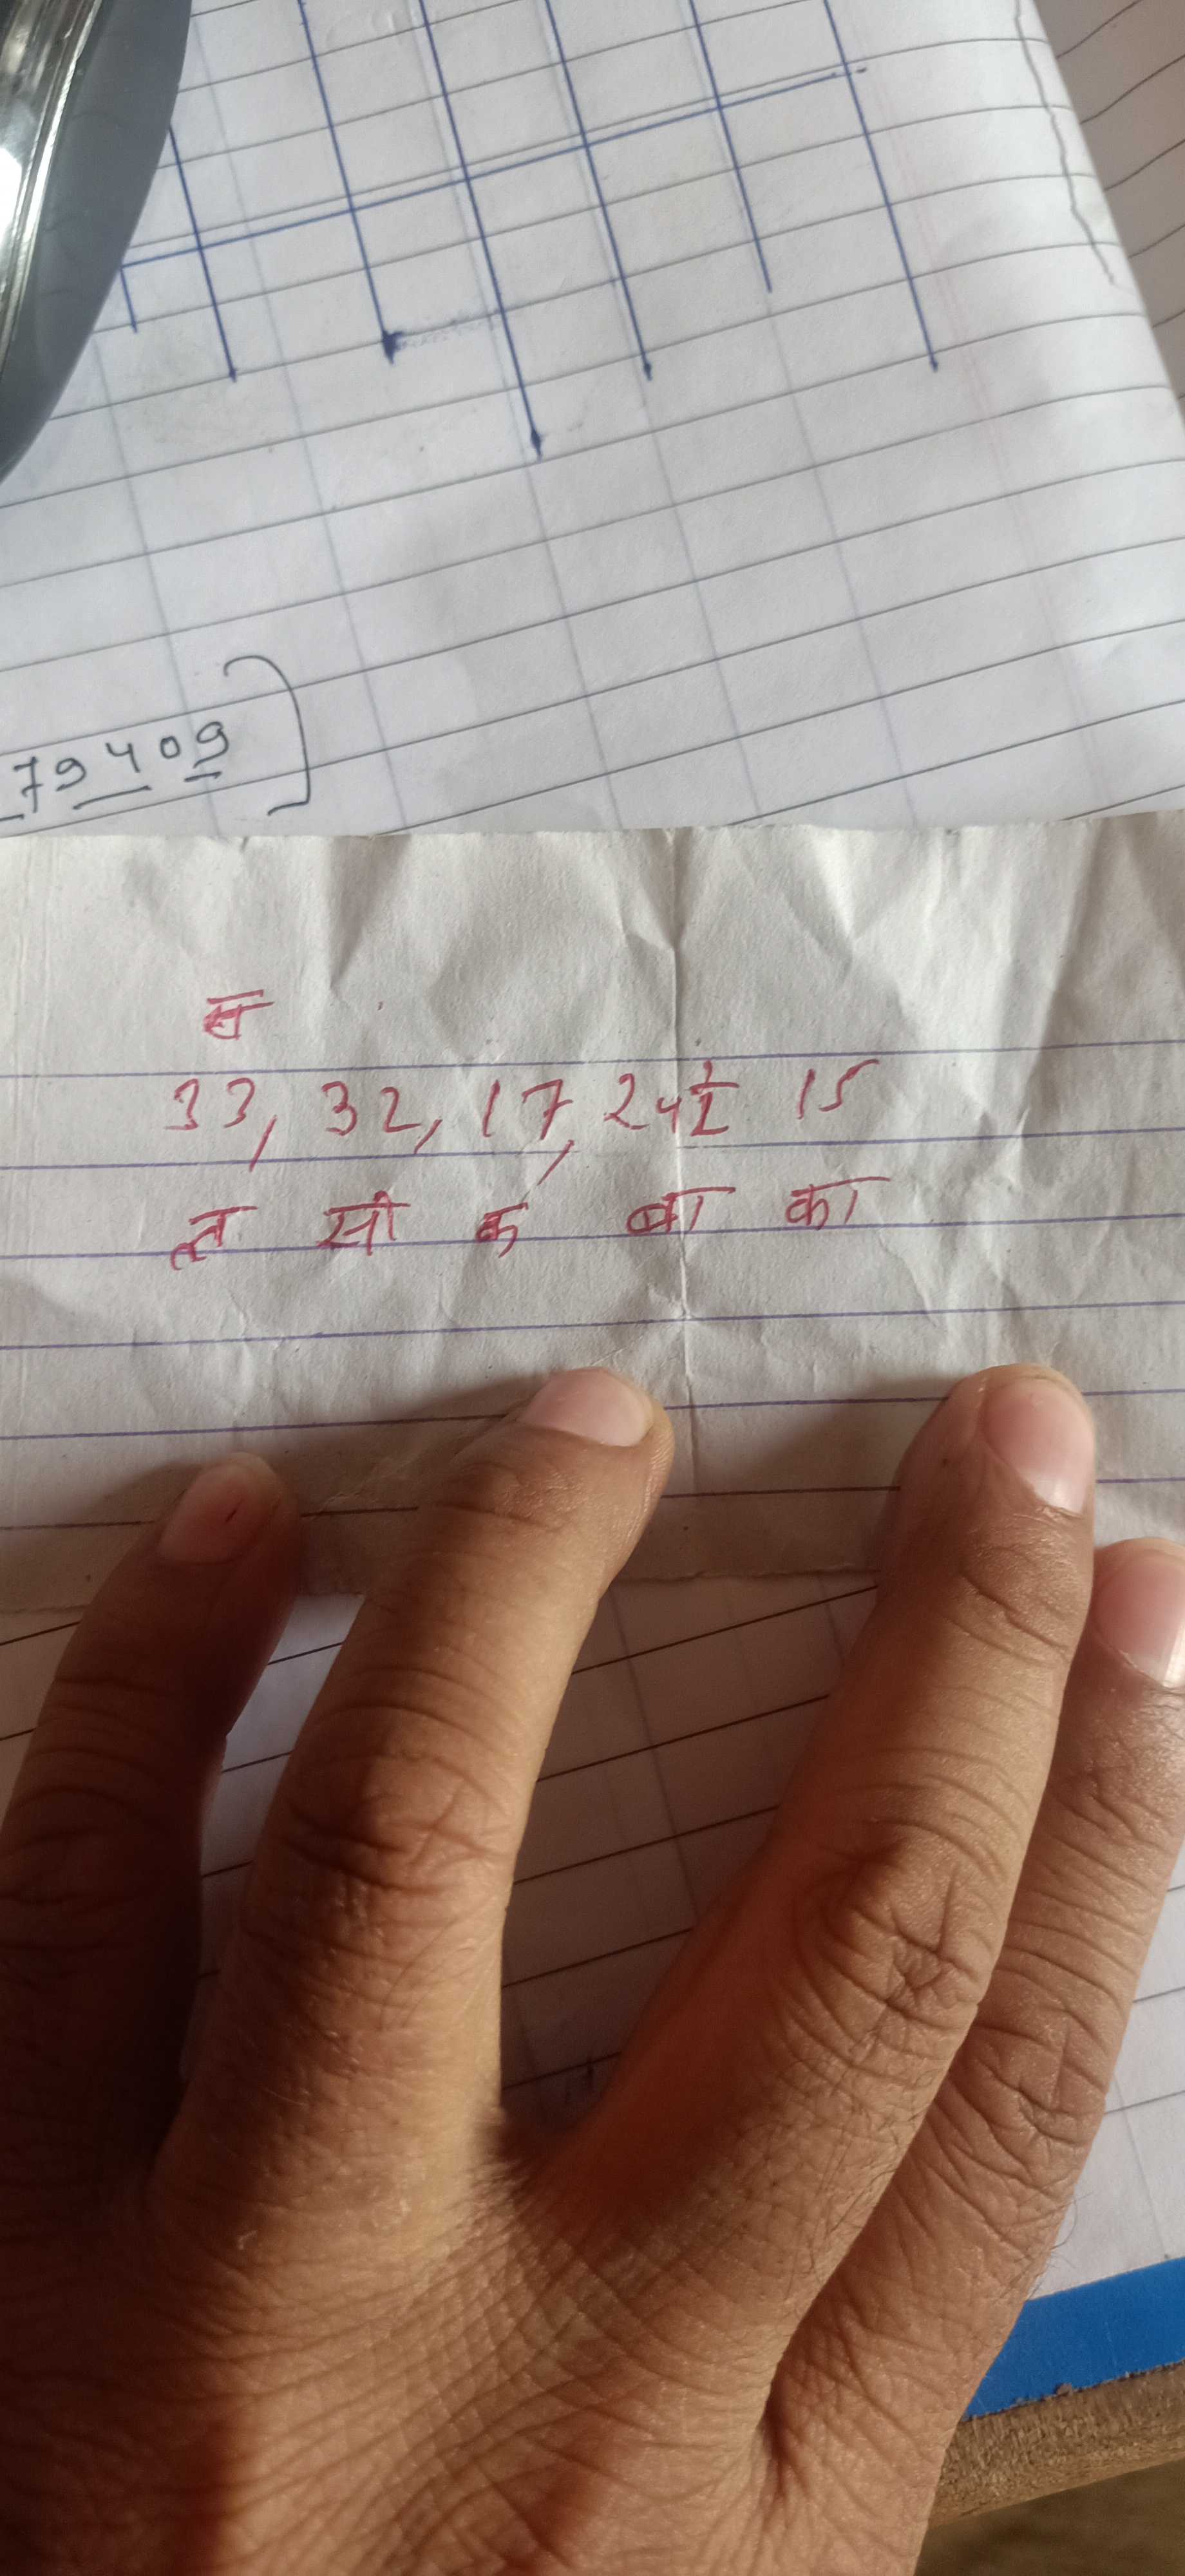 79409
ब
33, 32, 17, 24½ 15
ल सी क बा का